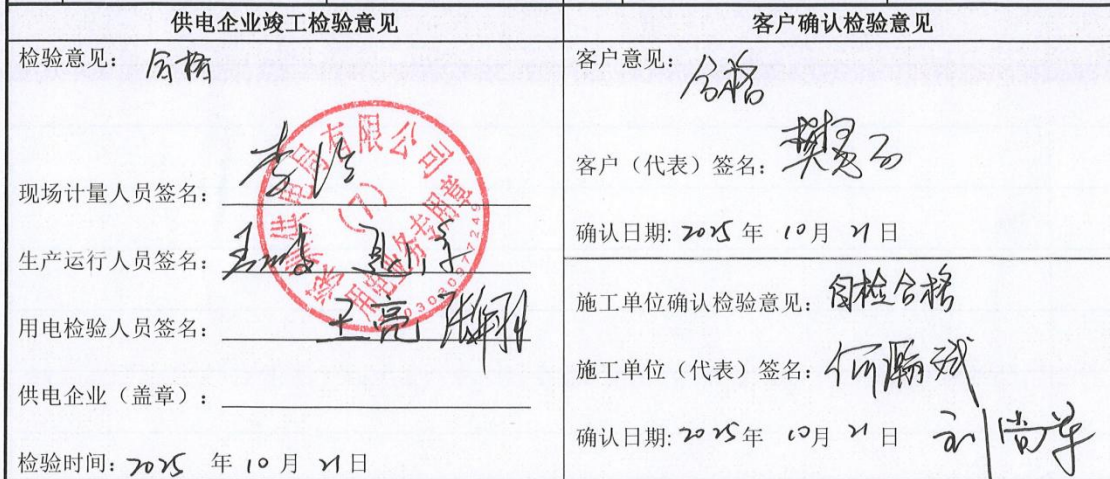 供电企业竣工检验意见
检验意见：合格
现场计量人员签名：
生产运行人员签名：
用电检验人员签名：王亮
供电企业（盖章）：
检验时间：2025 年 10 月 21 日
深圳供电局有限公司
(7)
用电业务专用章
客户确认检验意见
客户意见：合格
客户（代表）签名：
确认日期：2025 年 10 月 21 日
施工单位确认检验意见：自检合格
施工单位（代表）签名：
确认日期：2025 年 10 月 21 日